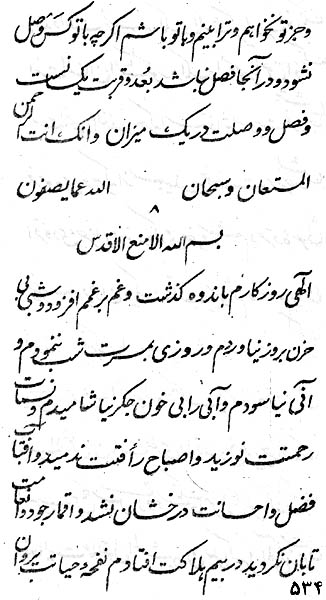 و جز تو نخواهم و ترا بینم و با تو باشم اگر چه با تو کس وصل
نشود و در آنجا فصل نباشد بعد و قربت یک نسبت
و فصل و وصلت در یک میزان و انک انت الرحمن
المستعان و سبحان الله عما یصفون
۸
بسم الله الامنع الاقدس
الهی روزگارم باندوه گذشت و غم بر غمم افزود و شبی بی
حزن بروز نیاوردم و روزی بمسرت شب ننمودم و
آنی نیاسودم و آبی را بی خون جگر نیاشامیدم و نسمات
رحمتت نوزید و اصباح رأفتت ندمید و آفتاب
فضل و احسانت درخشان نشد و اقمار جود و انعامت
تابان نگردید در بیم هلاکت افتادم نفحهٔ حیاتت
۵۳۴